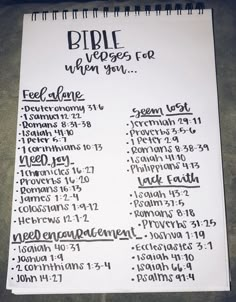 BIBLE
verses for
when you...
Feel alone
• Deuteronomy 31:6
• 1 Samuel 12:22
• Romans 8:31-38
• Isaiah 41:10
• 1 Peter 5:7
• 1 Corinthians 10:13
Need joy
• 1 Chronicles 16:27
• Proverbs 16:20
• Romans 15:13
• James 1:2-4
• Colossians 1:9-12
• Hebrews 12:1-2
Need encouragement
• Isaiah 40:31
• Joshua 1:9
• 2 Corinthians 1:3-4
• John 14:27
Seem lost
• Jeremiah 29:11
• Proverbs 3:5-6
• 1 Peter 2:9
• Romans 8:38-39
• Isaiah 41:10
• Philippians 4:13
Lack Faith
• Isaiah 43:2
• Psalm 37:5
• Romans 8:18
• Proverbs 31:25
• Joshua 1:9
• Ecclesiastes 3:1
• Isaiah 41:10
• Isaiah 66:9
• Psalms 91:4